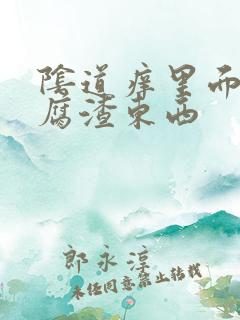 陰道痒里而
腐渣东西
郎永淳
未经同意禁止转载